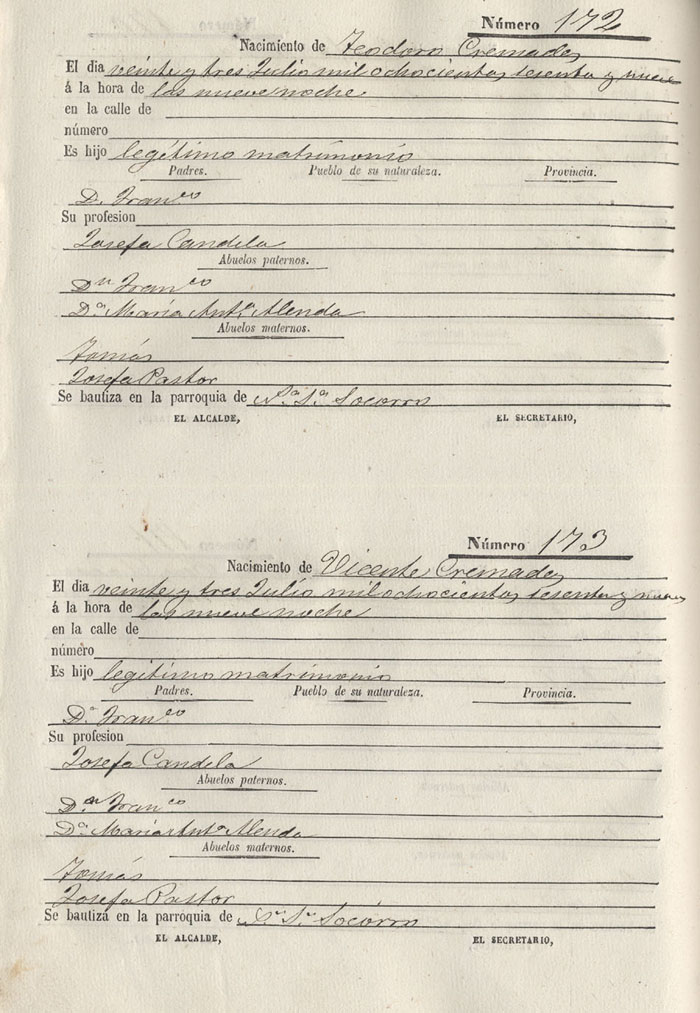 Número 172
Nacimiento de Teodoro Cremades
El dia veinte y tres Julio mil ochocientos sesenta y nueve
á la hora de las nueve noche.
en la calle de
número
Es hijo legítimo matrimonio
Padres. Pueblo de su naturaleza. Provincia.
D. Franco
Su profesion
Josefa Candela
Abuelos paternos.
Dn Franco
Da. Maria Anta. Alenda
Abuelos maternos.
Tomás
Josefa Pastor
Se bautiza en la parroquia de Na. Sa. Socorro
EL ALCALDE, EL SECRETARIO,
Número 173
Nacimiento de Vicente Cremades
El dia veinte y tres Julio mil ochocientos sesenta y nueve
á la hora de las nueve noche
en la calle de
número
Es hijo legítimo matrimonio
Padres. Pueblo de su naturaleza. Provincia.
D. Franco
Su profesion
Josefa Candela
Abuelos paternos.
Dn Franco
Da. Maria Anta Alenda
Abuelos maternos.
Tomás
Josefa Pastor
Se bautiza en la parroquia de Na. Sa. Socorro
EL ALCALDE, EL SECRETARIO,